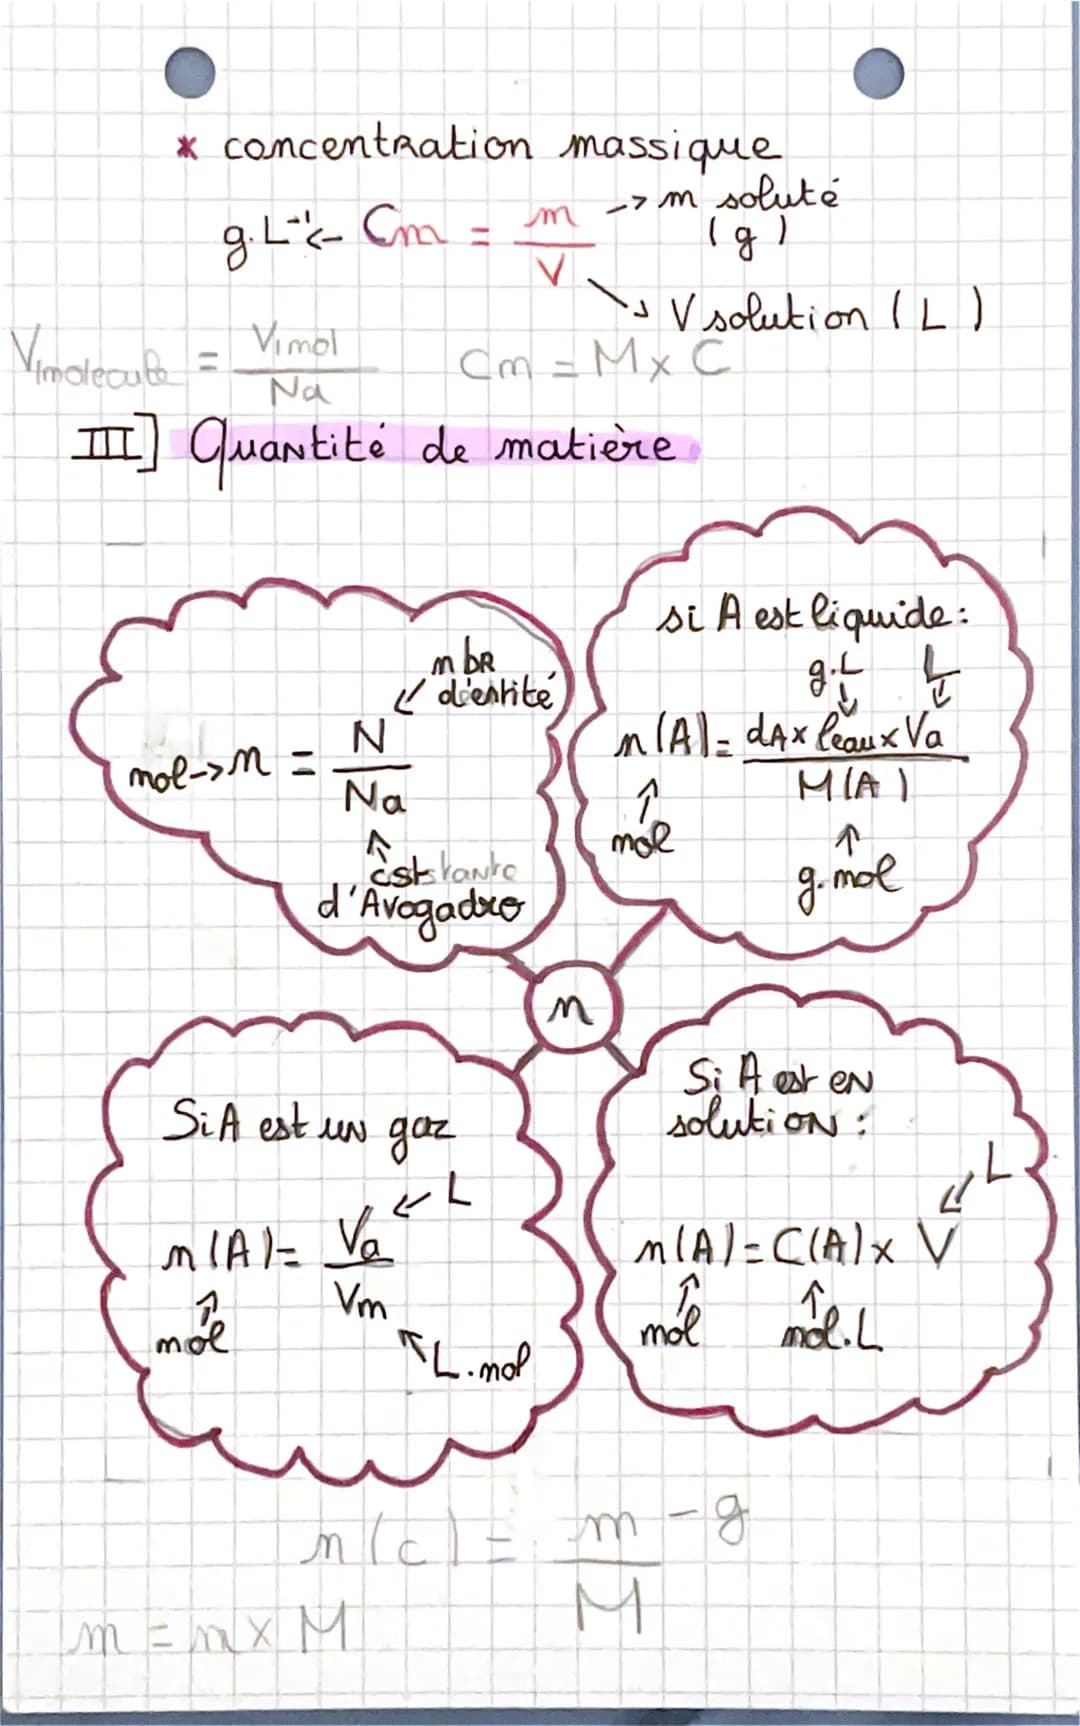 * concentration massique
g.L⁻¹ <- Cm = m/V -> m soluté
(g)
V solution (L)
V1molécule = V1mol/Na Cm = M x C
III] Quantité de matière
nbr
d'entité
mol -> n = N/Na
cststante
d'Avogadro
si A est liquide :
g.L L
n(A) = dA x ρeau x Va / M(A)
mol
g.mol
n
Si A est un gaz
L
n(A) = Va/Vm
mol
L.mol
Si A est en
solution :
L
n(A) = C(A) x V
mol mol.L
n(c) = m/M - g
m = n x M